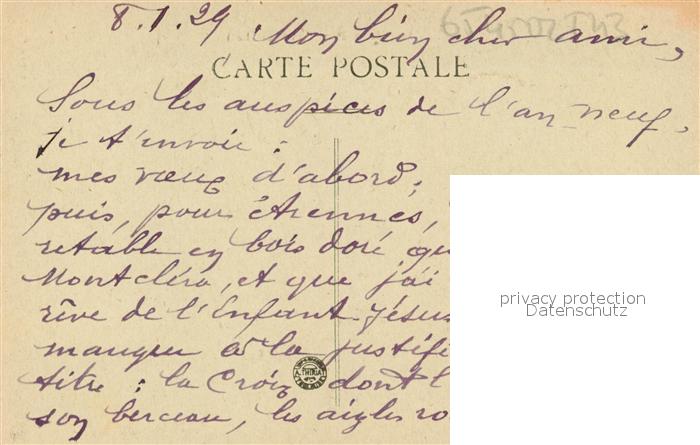 8.1.29 Mon bien cher ami,
CARTE POSTALE
Sous les auspices de l'an neuf,
je t'envoie :
mes vœux d'abord,
puis, pour étrennes,
retable en bois doré qu
Montcléra, et que j'ai
rêve de l'Enfant Jésus
manque à la justifi
titre : la Croix dont l
son berceau, les aigles ro
privacy protection
Datenschutz